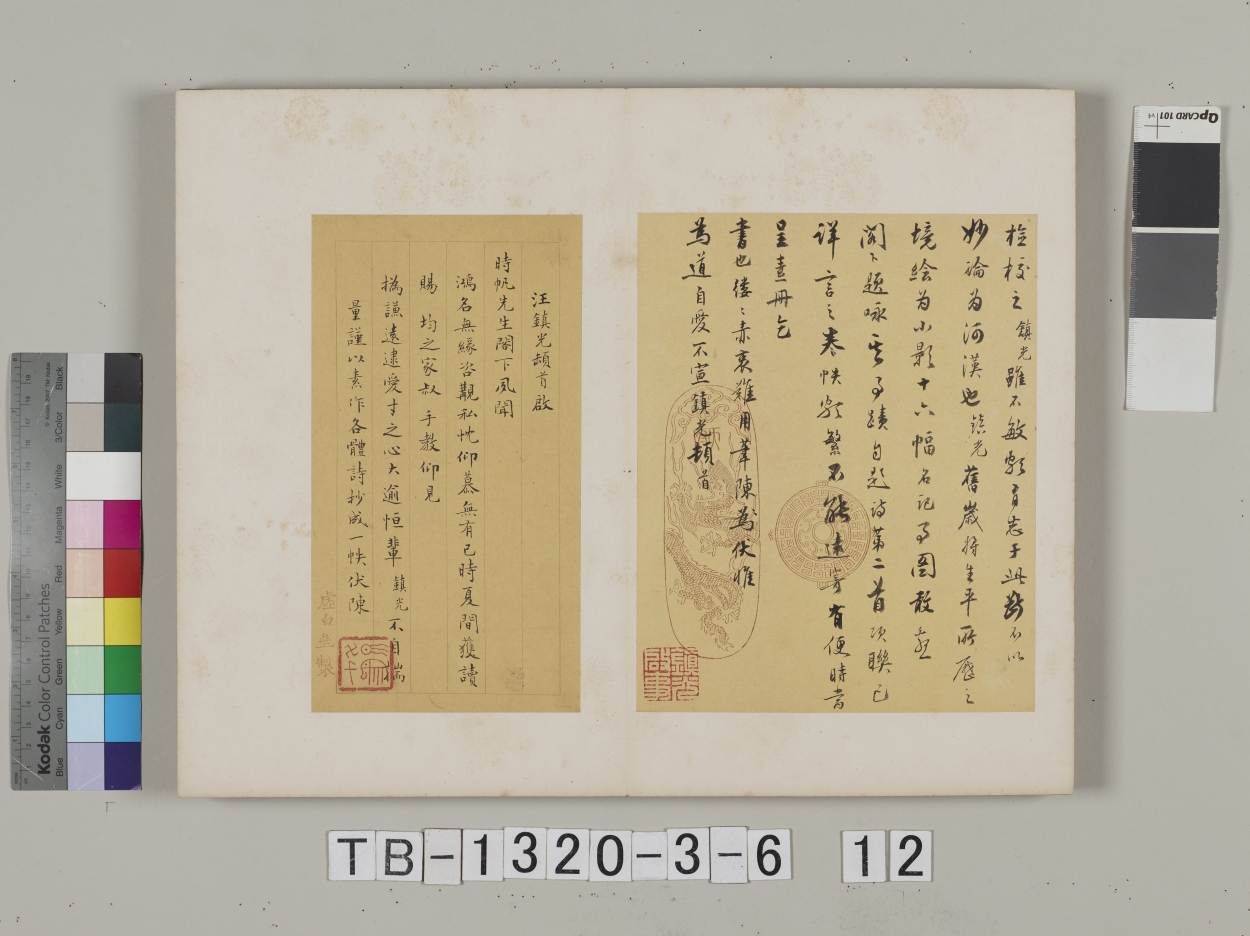 檢校之鎮光雖不敏頗有志于此斷不以
妙論為河漢也鎮光舊歲將生平所歷之
境繪為小影十六幅名記事圖敢乞
閣下題咏其事蹟自題詩第二首項聯已
詳言之卷帙頗繁不能遠寄有便時當
呈壹冊乞
書也縷縷赤衷難用筆陳為伏惟
為道自愛不宣鎮光頓首
鎮光啟事
汪鎮光頓首啟
時帆先生閣下夙聞
鴻名無緣咨覲私忱仰慕無有已時夏間獲讀
賜均之家叔手教仰見
撝謙遠逮愛才之心大逾恒輩鎮光不自揣
量謹以素作各體詩抄成一帙伏陳
虛白齋製
TB-1320-3-6 12
QPCARD 101 v4
Kodak Color Control Patches
© Kodak, 2007 TM: Kodak
Blue Cyan Green Yellow Red Magenta White 3/Color Black